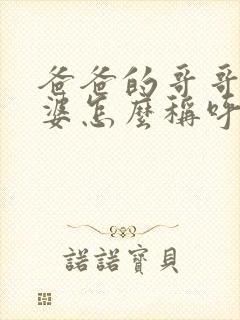 爸爸的哥哥
婆怎麼稱呼
諾諾寶貝